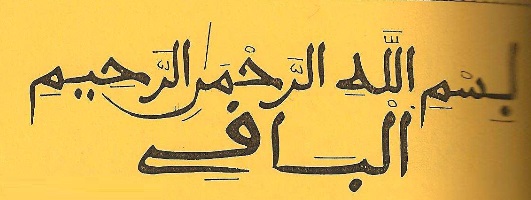 بِسْمِ اللَّهِ الرَّحْمَنِ الرَّحِيمِ
اَلْبَاقِي